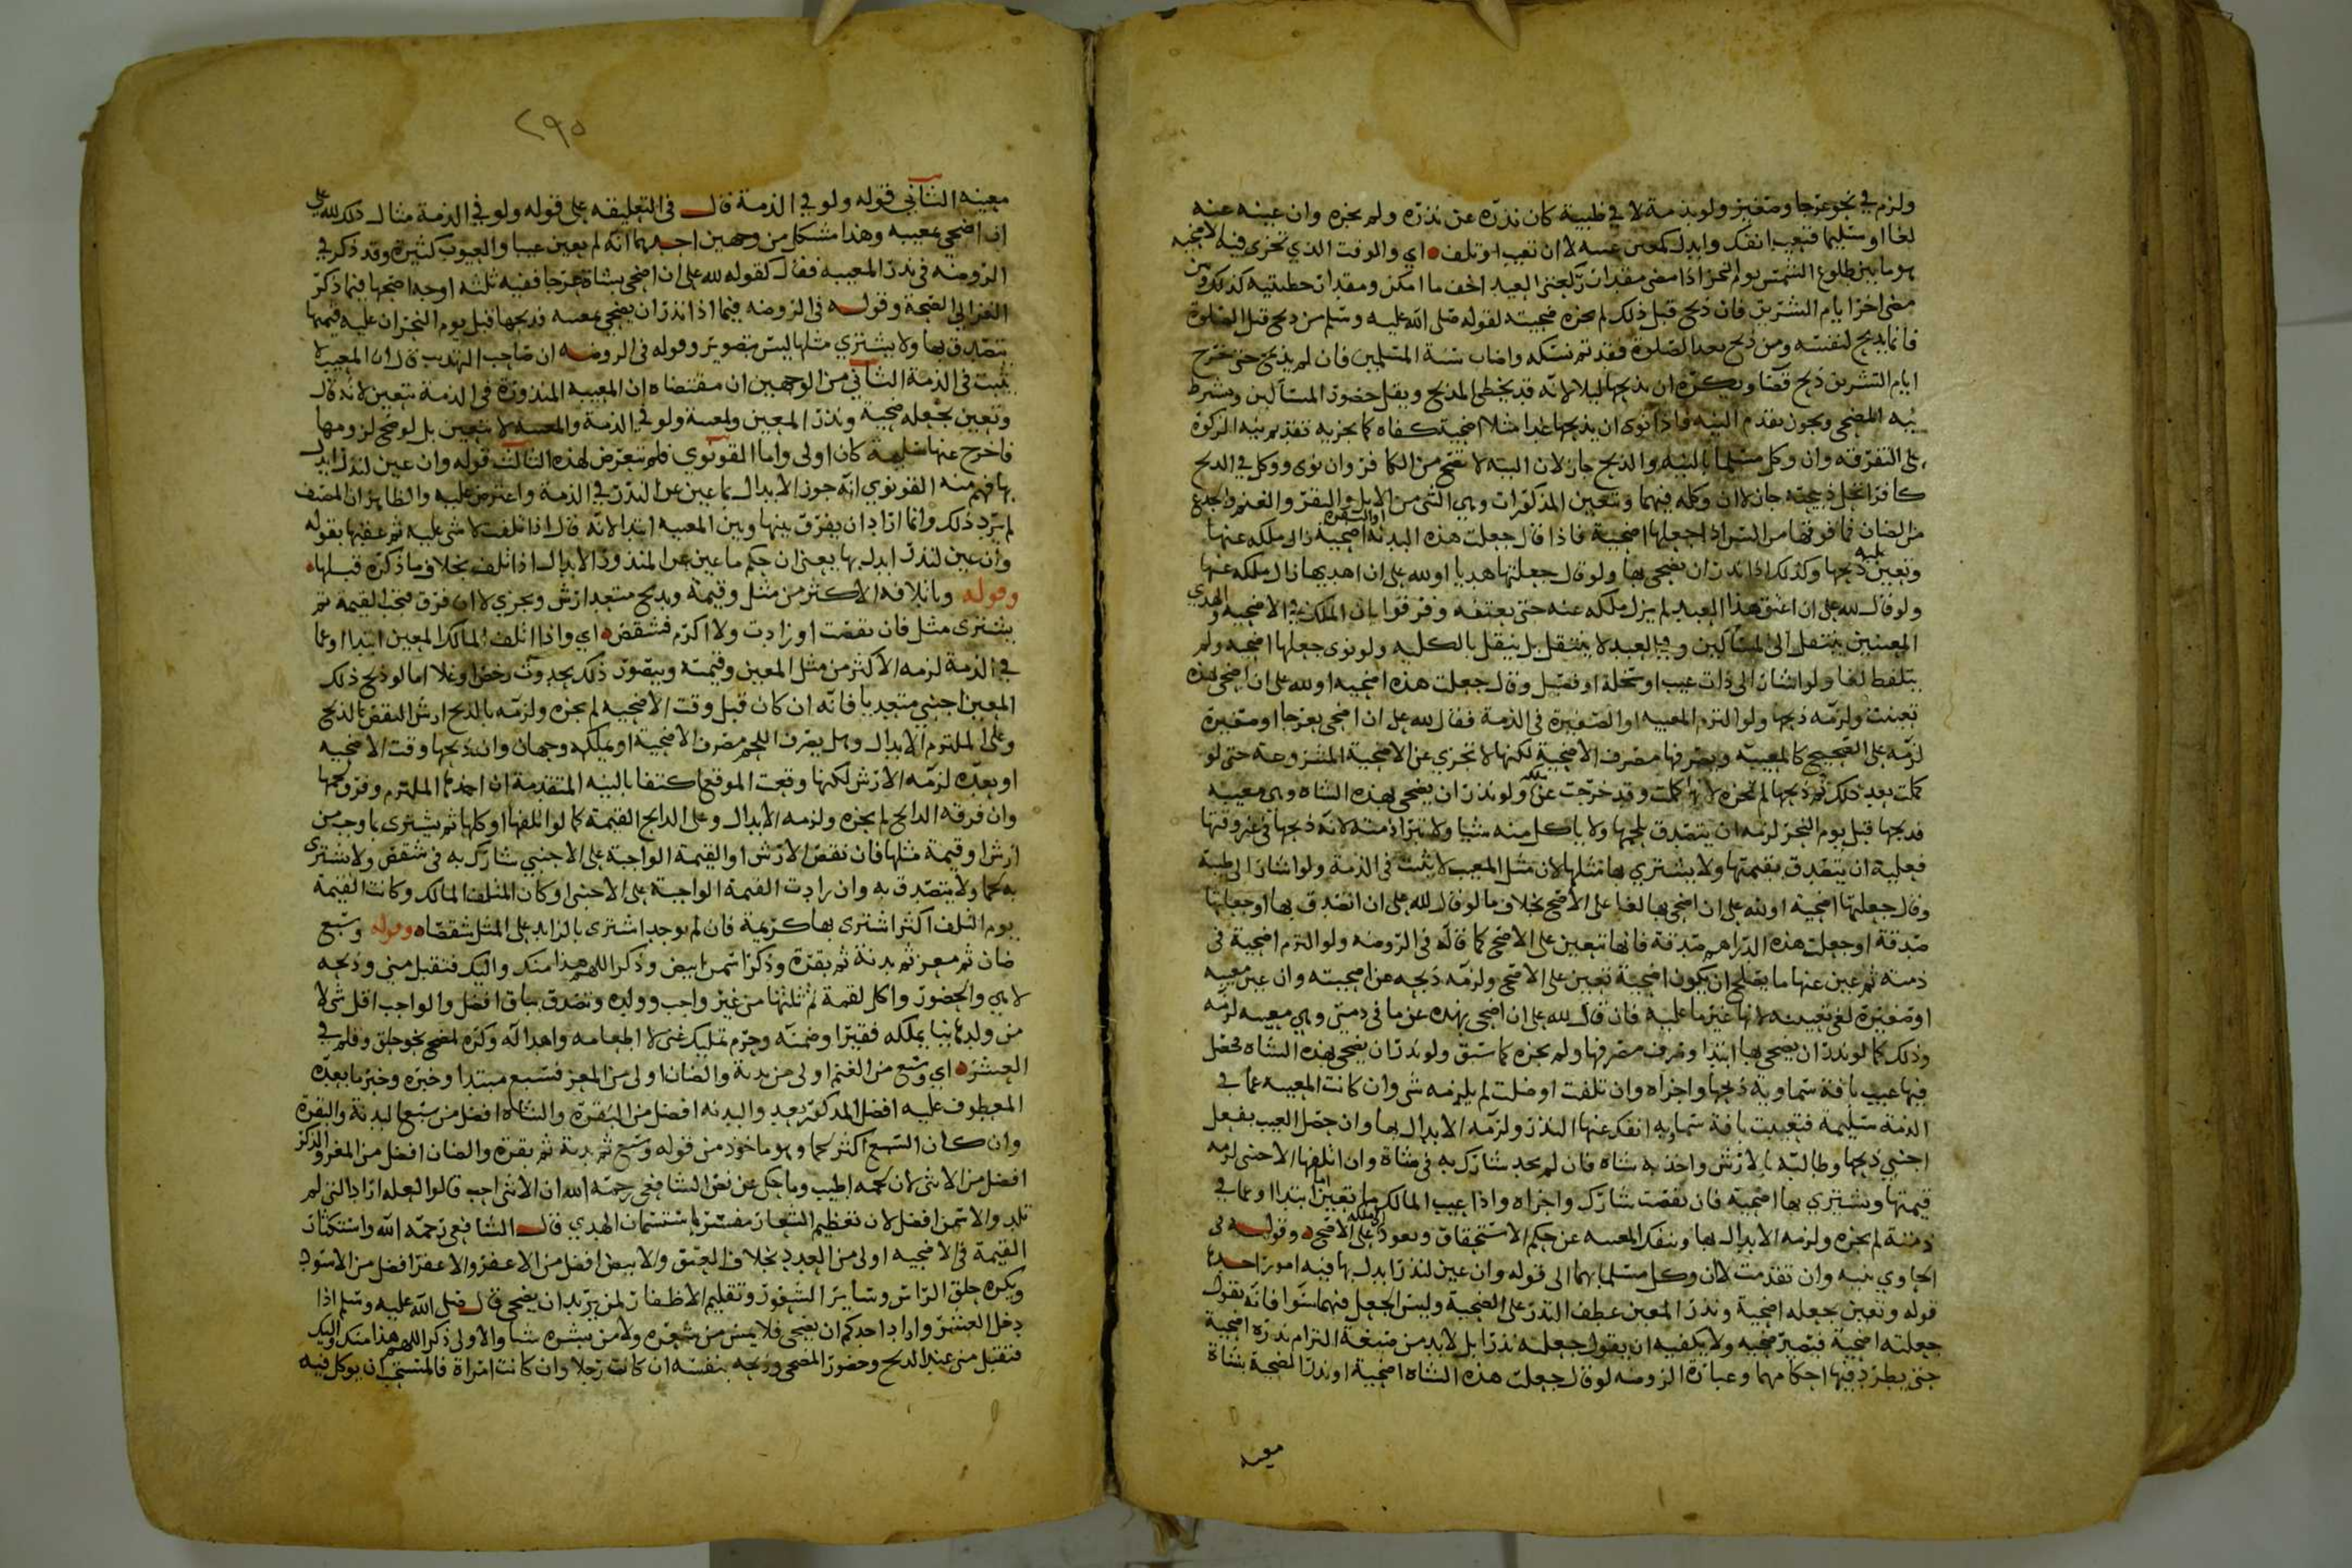 ولزم في نحو عرجا وصغير ولو بذمة لا في ظبية كان نذره عن نذره ولم يجزه وان عينه عنه
لغا او سليما فتعيب انفك وابدل كمعين عنه لا ان تعيب او تلف اي والوقت الذي تجزى فيه الاضحية
هو ما بين طلوع الشمس يوم النحر اذا مضى مقدار ركعتي العيد اخف ما امكن ومقدار خطبتيه كذلك وبين
مضى اخر ايام التشريق فان ذبح قبل ذلك لم يجزه ضحيته لقوله صلى الله عليه وسلم من ذبح قبل الصلوة
فانما يذبح لنفسه ومن ذبح بعد الصلوة فقد تم نسكه واصاب سنة المسلمين فان لم يذبح حتى خرج
ايام التشريق ذبح قضا ويكره ان يذبحها ليلا لانه قد يخطى المذبح ويقل حضور المساكين وشرط
نية المضحى ويجوز تقدم النية فاذا نوى ان يذبحها غدا مثلا اضحية كفاه كما يجزيه تقديم نية الزكوة
على التفرقة وان وكل مسلما بالنية والذبح جاز لان النية لا تصح من الكافر وان نوى ووكل في الذبح
كافرا تحل ذبيحته جاز لا ان وكله فيهما وتتعين المذكورات وهى الثنى من الابل والبقر والغنم والجذع
من الضان فما فوقها من السن اذا جعلها اضحية فاذا قال جعلت هذه البدنة او الشاة اضحية زال ملكه عنها
وتعين عليه ذبحها وكذلك اذا نذر ان يضحى بها ولو قال جعلتها هديا او لله على ان اهديها زال ملكه عنها
ولو قال لله على ان اعتق هذا العبد لم يزل ملكه عنه حتى يعتقه وفرقوا بان الملك في الاضحية والهدي
المعينين ينتقل الى المساكين وفي العبد لا ينتقل بل ينتقل بالكلية ولو نوى جعلها اضحية ولم
يتلفظ لغا ولو اشار الى ذات عيب او سخلة او فصيل وقال جعلت هذه اضحية او لله على ان اضحى بهذه
تعينت ولزمه ذبحها ولو التزم المعيبة او الصغيرة في الذمة فقال لله على ان اضحى بعرجا او صغيرة
لزمه على الصحيح كالمعيبة ويصرفها مصرف الاضحية لكنها لا تجزي عن الاضحية المشروعة حتى لو
كملت بعد ذلك ثم ذبحها لم تجزه لانها كملت وقد خرجت عن ملكه ولو نذر ان يضحى بهذه الشاه وهى معيبة
فذبحها قبل يوم النحر لزمه ان يتصدق بلحمها ولا ياكل منه شيا ولا تبرا ذمته لانه ذبحها في غير وقتها
فعليه ان يتصدق بقيمتها ولا يشتري بها مثلها لان مثل المعيب لا يثبت فى الذمة ولو اشار الى ظبية
وقال جعلتها اضحية او لله على ان اضحى بها لغا على الاصح بخلاف ما لو قال لله على ان اتصدق بها او جعلتها
صدقة او جعلت هذه الدراهم صدقة فانها تتعين على الاصح كما قاله فى الروضه ولو التزم اضحية فى
ذمته ثم عين عنها ما يصلح ان يكون اضحية تعين على الاصح ولزمه ذبحه عن اضحيته وان عين معيبه
او صغيرة لغى تعيينه لانها غير ما عليه فان قال لله على ان اضحى بهذه عن ما فى ذمتى وهى معيبه لزمه
وذلك كما لو نذر ان يضحى بها ابتدا وصرف مصرفها ولم يجزه كما سبق ولو نذر ان يضحى بهذه الشاه فحصل
فيها عيب بافة سماوية ذبحها واجزاه وان تلفت او ضلت لم يلزمه شى وان كانت المعيبه عما في
الذمة سليمة فتعيبت بافة سماويه انفك عنها النذر ولزمه الابدال بها وان حصل العيب بفعل
اجنبي ذبحها وطالبه بالارش واخذ به شاه فان لم يجد شارك به فى شاة وان اتلفها الاجنبى لزمه
قيمتها ويشترى بها اضحية فان نقصت شارك واجزاه واذا عيب المالك ما تعين ابتدا او عما في
ذمته لم يجزه ولزمه الابدال بها وينفك المعيبه عن حكم الاستحقاق وتعود الى ملكه على الاصح وقوله في
الحاوي بنيه وان تقدمت لا ان وكل مسلما بهما الى قوله وان عين لنذر ابدل بها فيه امور احدها
قوله وتعين بجعله اضحية ونذر المعين عطف النذر على الضحية وليس الجعل فيهما سوا فانه بقول
جعلته اضحية فتصير ضحيه ولا يكفيه ان يقول جعلته نذرا بل لا بد من صيغة التزام نذره اضحية
حتى يطرد فيها احكامهما وعبارة الروضه لو قال جعلت هذه الشاه اضحية او نذر التضحية بشاة
معينه
٢٩٥
معينه الثاني قوله ولو في الذمة قال فى التعليقه على قوله ولو في الذمة مثال ذلك لله على
ان اضحى بمعيبه وهذا مشكل من وجهين احدهما انه لم يعين عيبا والعيوب كثيرة وقد ذكر في
الروضه فى نذر المعيبه فقال كقوله لله على ان اضحى بشاة عرجا ففيه ثلثه اوجه اصحها فيما ذكر
الغزالي الصحة وقوله فى الروضه فيما اذا نذر ان يضحى بمعيبه فذبحها قبل يوم النحر ان عليه قيمتها
يتصدق بها ولا يشتري مثلها ليس بتصوير وقوله فى الروضه ان صاحب التهذيب قال ان المعيب لا
يثبت فى الذمة الثاني من الوجهين ان مقتضاه ان المعيبه المنذورة في الذمة تتعين لانه قال
وتعين بجعله ضحية ونذر المعين ولمعيبة ولو في الذمة والمعيبه لا تتعين بل لو صح لزومها
فاخرج عنها سليمة كان اولى واما القونوي فلم يتعرض لهذه الثالث قوله وان عين لنذر ابدل
بها فهم منه القونوي انه جوز الابدال بما عين عن النذر في الذمة واعترض عليه والظاهر ان المصنف
لم يرد ذلك وانما اراد ان يفرق بينها وبين المعيبه ابتدا لانه قال اذا تلفت لا شى عليه ثم عقبها بقوله
وان عين لنذر ابدل بها يعنى ان حكم ما عين عن المنذور الابدال اذا تلف بخلاف ما ذكره قبلها
وقوله وباتلافه الاكثر من مثل وقيمة وبذبح متعد ارش ويجزي لا ان فرق فتجب القيمة ثم
يشترى مثل فان نقصت او زادت ولا اكرم فشقص اي واذا اتلف المالك المعين ابتدا او عما
في الذمة لزمه الاكثر من مثل المعين وقيمته ويتصور ذلك بحدوث رخص او غلا اما لو ذبح ذلك
المعين اجنبي متعديا فانه ان كان قبل وقت الاضحيه لم يجزه ولزمه بالذبح ارش النقص بالذبح
وعلى الملتزم الابدال وهل يصرف اللحم مصرف الاضحية او يملكه وجهان وان ذبحها وقت الاضحيه
او بعده لزمه الارش لكنها وقعت الموقع اكتفا بالنيه المتقدمة ان اخذها الملتزم وفرق لحمها
وان فرقه الذابح لم يجزه ولزمه الابدال وعلى الذابح القيمة كما لو اتلفها او كلها ثم يشترى بما وجب من
ارش او قيمة مثلها فان نقص الارش او القيمة الواجبة على الاجنبي شارك به في شقص ولا يشترى
به لحما ولا يتصدق به وان زادت القيمة الواجبة على الاجنبى او كان المتلف المالك وكانت القيمة
يوم التلف اكثر اشترى بها كريمة فان لم يوجد اشترى بالزايد على المثل شقصا وقوله وسبع
ضان ثم معز ثم بدنة ثم بقرة وذكر اسمن ابيض وذكر اللهم هذا منك واليك فتقبل منى وذبحه
لا هي والحضور واكل لقمة ثم ثلثها من غير واجب وولده وتصدق بباق افضل والواجب اقل شى لا
من ولدها نيا يملكه فقيرا وضمنه وحرم تمليك غنى لا اطعامه واهدا له وكره لمضح نحو حلق وقلم في
العشر اي وسبع من الغنم اولى من بدنة والضان اولى من المعز فسبع مبتدا وخبره وخبر ما بعده
المعطوف عليه افضل المذكور بعد والبدنه افضل من البقرة والشاه افضل من سبع البدنة والبقرة
وان كان السبع اكثر لحما وهو ماخوذ من قوله وسبع ثم بدنة ثم بقرة والضان افضل من المعز والذكر
افضل من الانثى لان لحمه اطيب وما حكى عن نص الشافعي رحمه الله ان الانثى احب قالوا لعله اراد التي لم
تلد والاسمن افضل لان تعظيم الشعائر مفسر باستسمان الهدي قال الشافعي رحمه الله واستكثار
القيمة فى الاضحيه اولى من العدد بخلاف العتق والابيض افضل من الاعفر والاعفر افضل من الاسود
ويكره حلق الراس وساير الشعور وتقليم الاظفار لمن يريد ان يضحى قال صلى الله عليه وسلم اذا
دخل العشر واراد احدكم ان يضحى فلا يمس من شعره ولا من بشره شيا والاولى ذكر اللهم هذا منك واليك
فتقبل منى عند الذبح وحضور المضحى وذبحه بنفسه ان كانت رجلا وان كانت امراة فالمستحب ان يوكل فيه